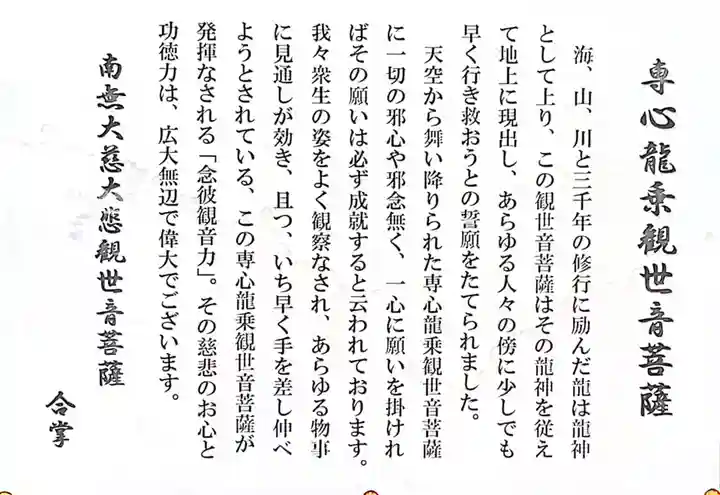 専心龍乗観世音菩薩
海、山、川と三千年の修行に励んだ龍は龍神
として上り、この観世音菩薩はその龍神を従え
て地上に現出し、あらゆる人々の傍に少しでも
早く行き救おうとの誓願をたてられました。
天空から舞い降りられた専心龍乗観世音菩薩
に一切の邪心や邪念無く、一心に願いを掛けれ
ばその願いは必ず成就すると云われております。
我々衆生の姿をよく観察なされ、あらゆる物事
に見通しが効き、且つ、いち早く手を差し伸べ
ようとされている、この専心龍乗観世音菩薩が
発揮なされる「念彼観音力」。その慈悲のお心と
功徳力は、広大無辺で偉大でございます。
南無大慈大悲観世音菩薩
合掌